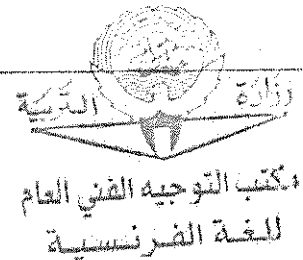 وزارة التربية
مكتب التوجيه الفني العام
للغة الفرنسية